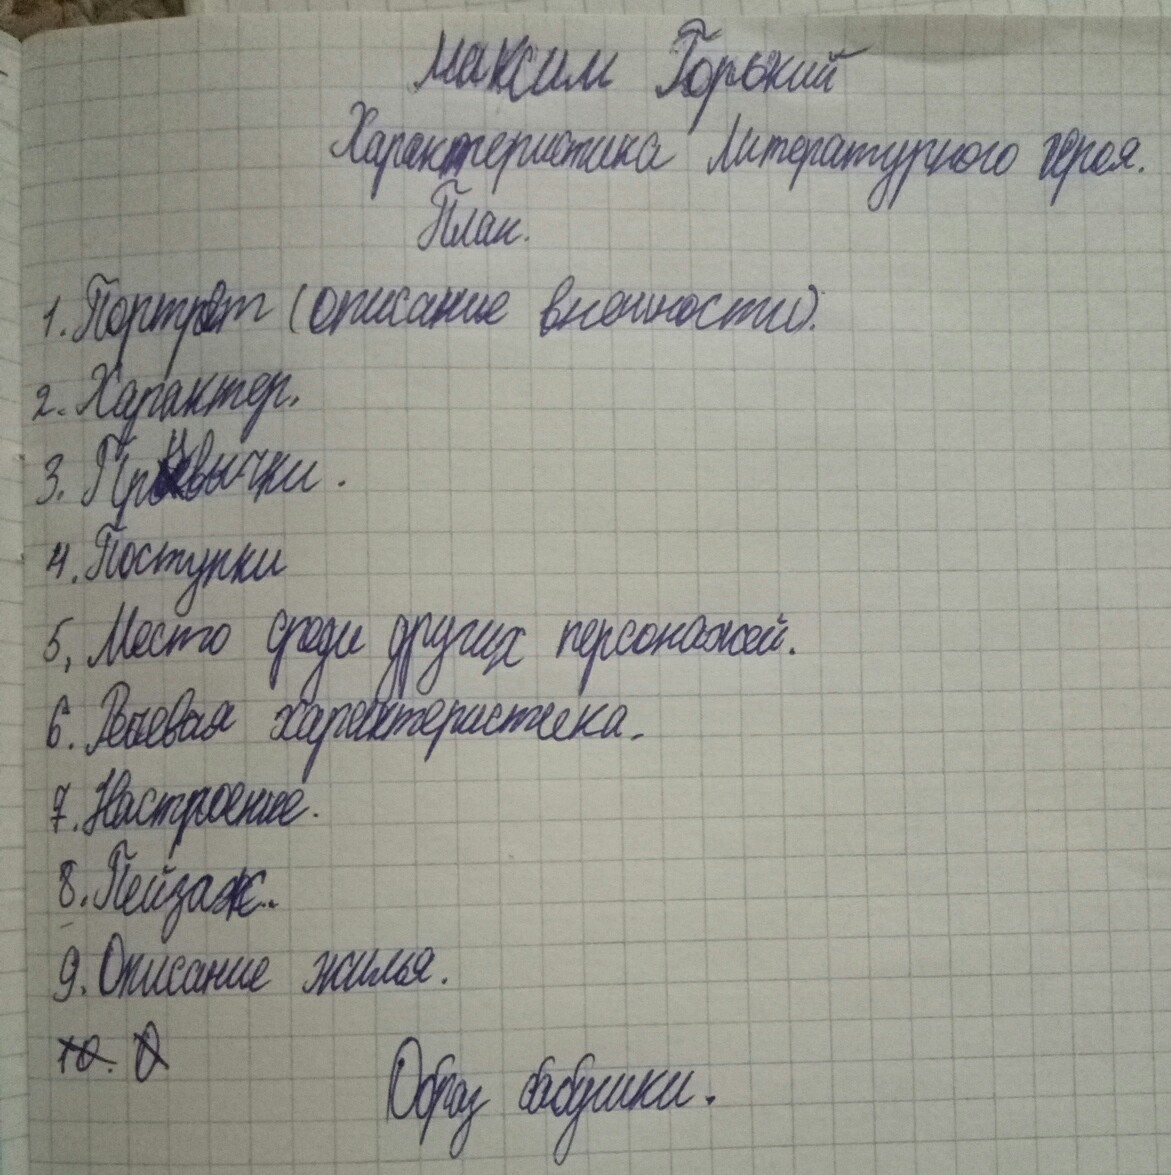 Максим Горький
Характеристика Литературного героя.
План.
1. Портрет (описание внешности).
2. Характер.
3. Привычки.
4. Поступки
5. Место среди других персонажей.
6. Речевая характеристика.
7. Настроение.
8. Пейзаж.
9. Описание жилья.
10. О
Образ бабушки.